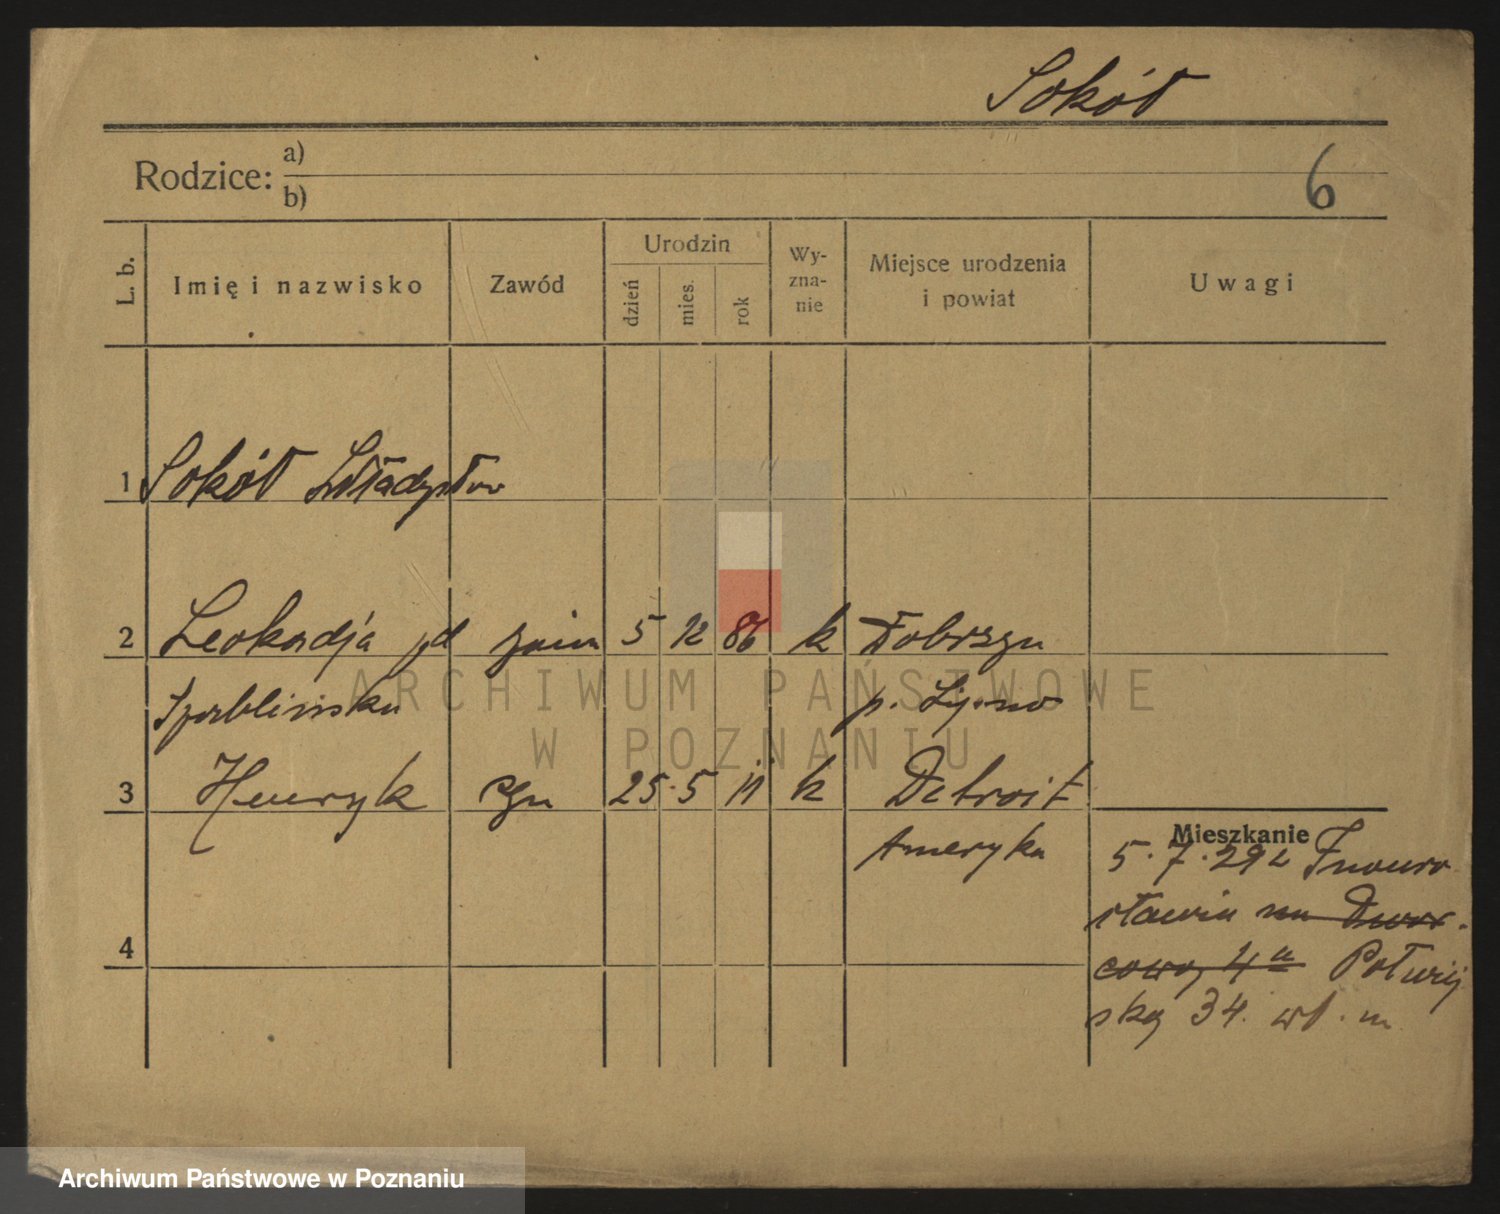 Sokół
Rodzice: a)
b)
6
L. b.
Imię i nazwisko
Zawód
Urodzin
dzień
mies.
rok
Wy-
zna-
nie
Miejsce urodzenia
i powiat
Uwagi
1 Sokół Władysław
2 Leokadja 5 12 86 k Dobrszyn
p. Lipno
3 Henryk syn 25. 5 11 k Detroit
Ameryka
Mieszkanie
5. 7. 29 z Inowro
sławia na Dwor.
cową 4a Półwiej
ską 34. m
4
ARCHIWUM PAŃSTWOWE
W POZNANIU
Archiwum Państwowe w Poznaniu